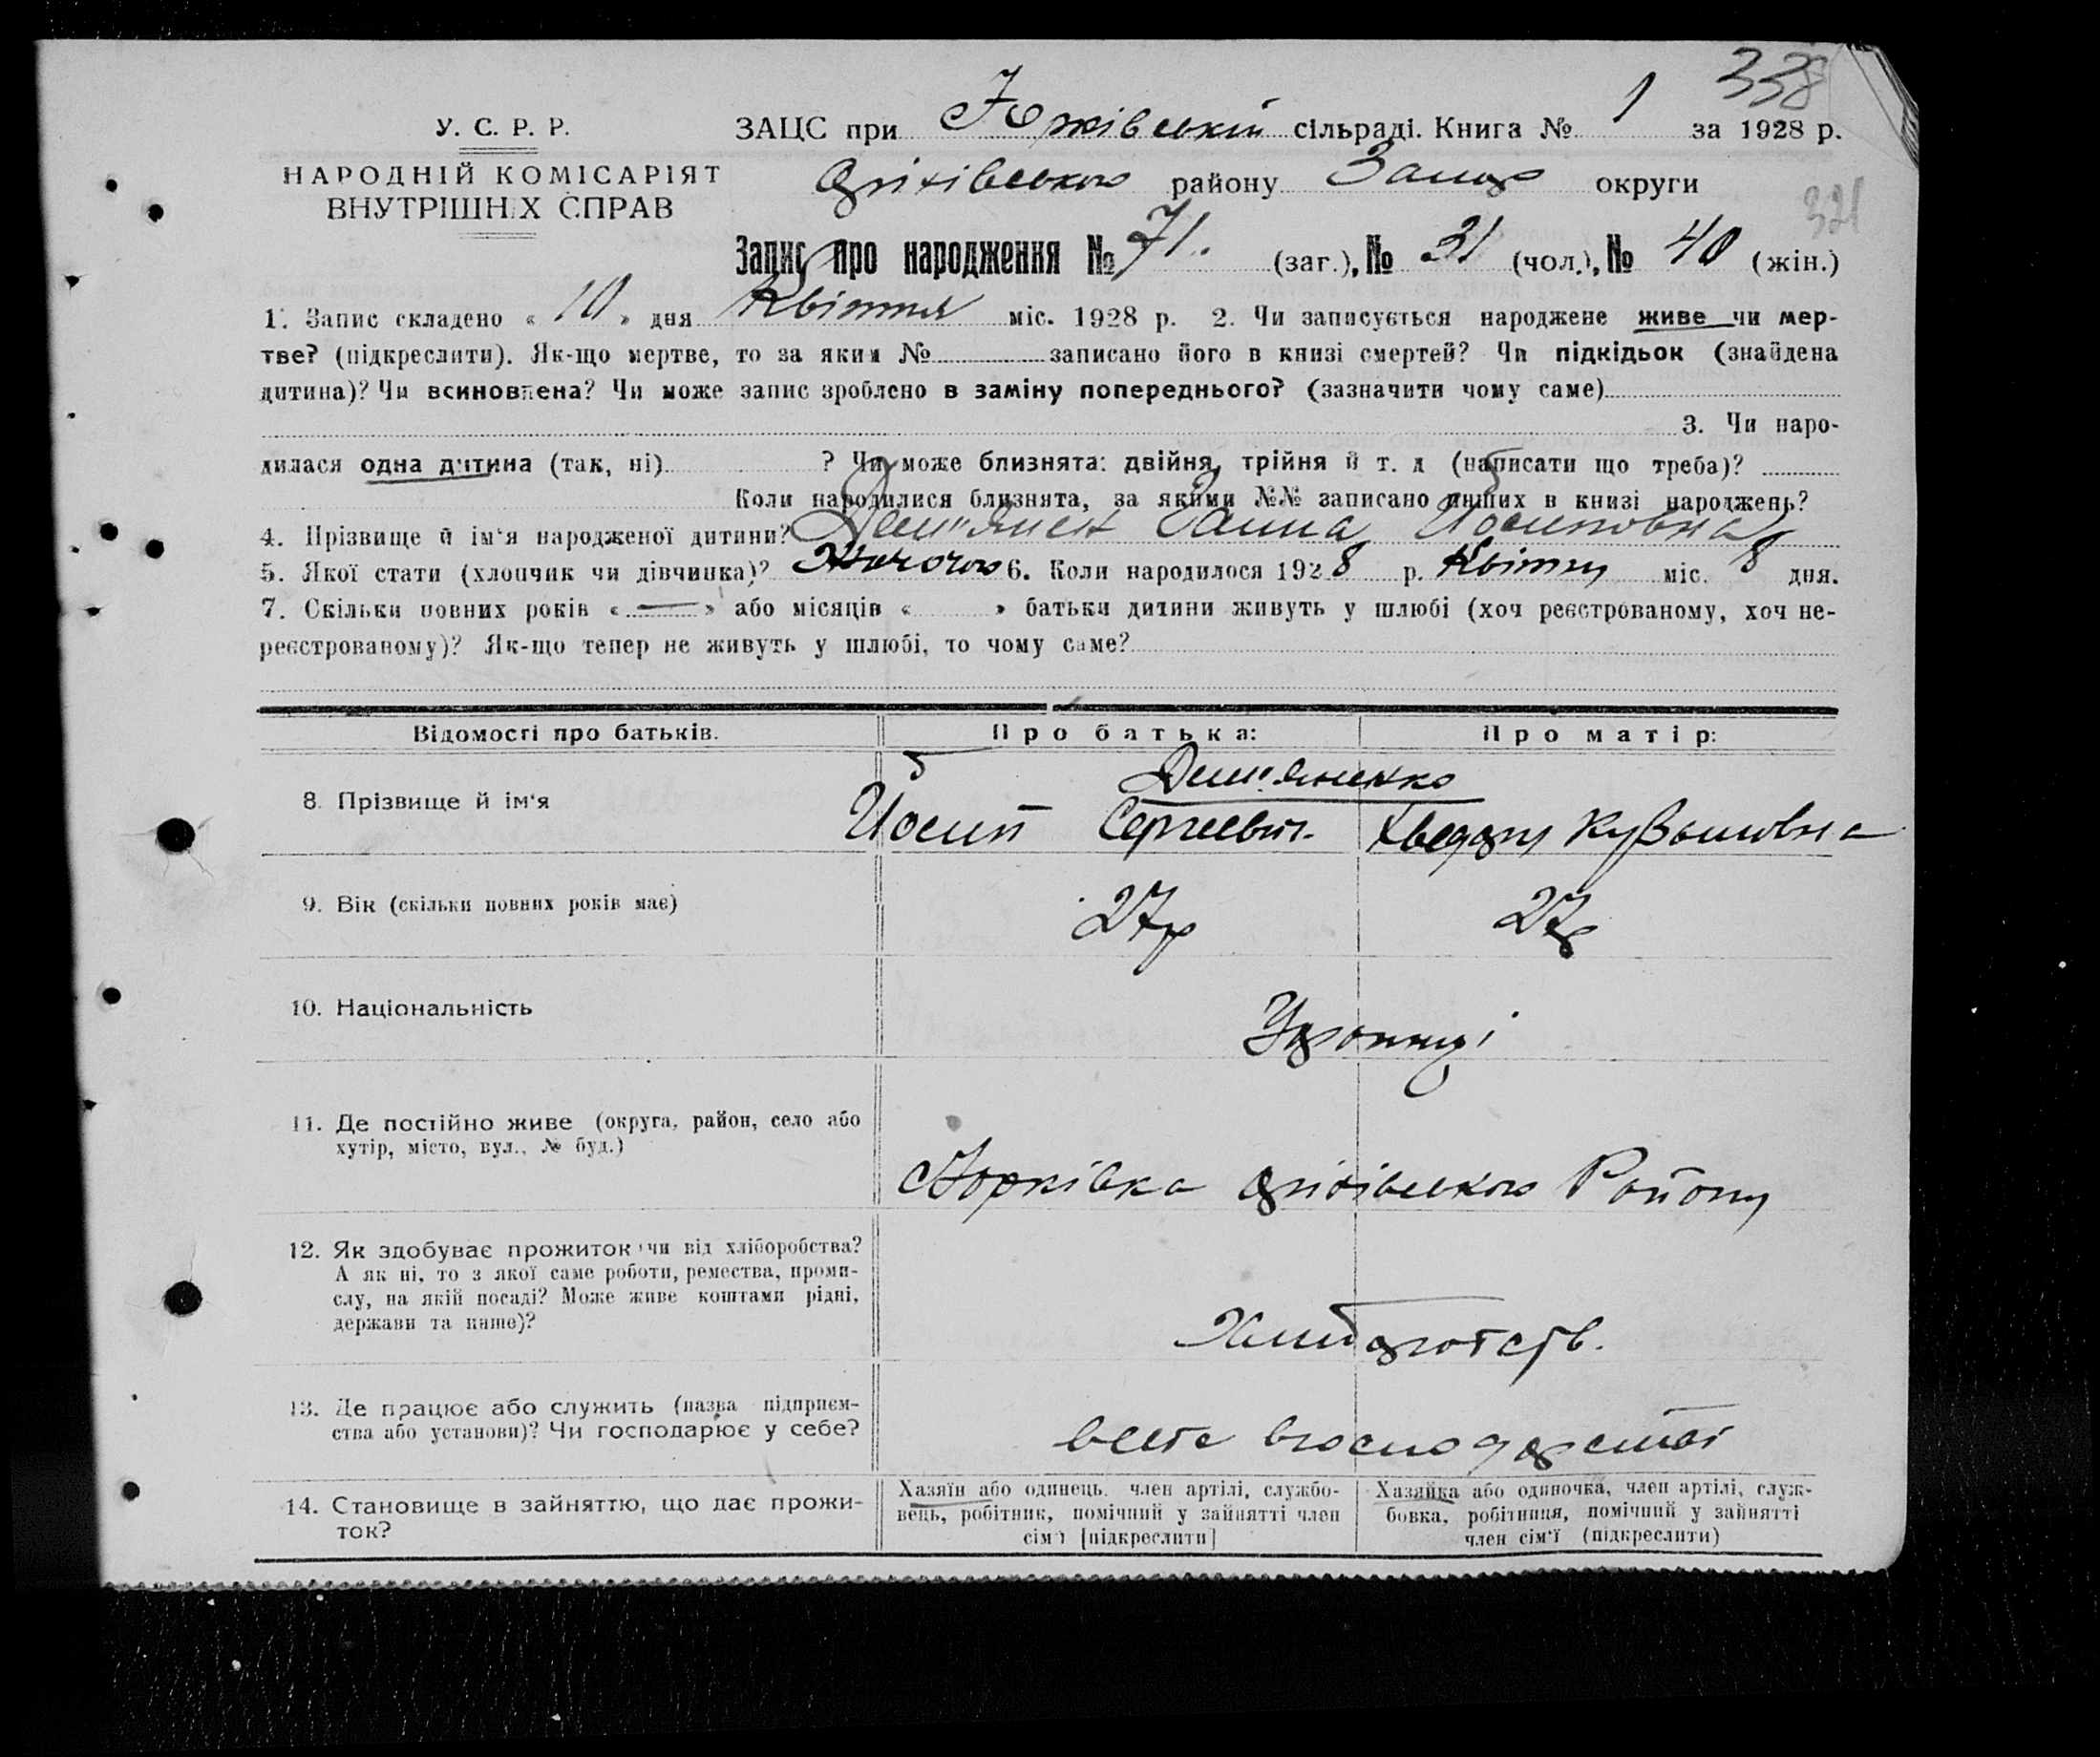 338
У. С. Р. Р.
НАРОДНІЙ КОМІСАРІЯТ
ВНУТРІШНІХ СПРАВ
321
ЗАЦС при сільраді. Книга № 1 за 1928 р.
Оріхівського району Запор округи
Запис про народження № 71. (заг.), № 31 (чол.), № 40 (жін.)
1. Запис складено « 10 » дня Квітня міс. 1928 р. 2. Чи записується народжене живе чи мер-
тве? (підкреслити). Як-що мертве, то за яким № записано його в книзі смертей? Чи підкідьок (знайдена
дитина)? Чи всиновлена? Чи може запис зроблено в заміну попереднього? (зазначити чому саме)
3. Чи наро-
дилася одна дитина (так, ні) ? Чи може близнята: двійня, трійня й т. д (написати що треба)?
Коли народилися близнята, за якими №№ записано инших в книзі народжень?
4. Прізвище й ім‘я народженої дитини? Ганна Йосиповна
5. Якої стати (хлопчик чи дівчинка)? Жіночого 6. Коли народилося 1928 р. Квітня міс. 8 дня.
7. Скільки повних років « — » або місяців « » батьки дитини живуть у шлюбі (хоч реєстрованому, хоч не-
реєстрованому)? Як-що тепер не живуть у шлюбі, то чому саме?
Відомості про батьків. Про батька: Про матір:
Дем"яненко
8. Прізвище й ім‘я Йосип Сергеевич. Хведора Кузьмовна
9. Вік (скільки повних років має) 27р 27р
10. Національність Українці
11. Де постійно живе (округа, район, село або
хутір, місто, вул., № буд.)
Юрківка Оріхівського Району
12. Як здобуває прожиток чи від хліборобства?
А як ні, то з якої саме роботи, ремества, проми-
слу, на якій посаді? Може живе коштами рідні,
держави та инше)?
13. Де працює або служить (назва підприєм-
ства або установи)? Чи господарює у себе?
14. Становище в зайняттю, що дає прожи-
ток?
Хазяїн або одинець, член артілі, службо-
вець, робітник, помічний у зайнятті член
сім‘ї [підкреслити]
Хазяйка або одиночка, член артілі, служ-
бовка, робітниця, помічний у зайнятті
член сім‘ї (підкреслити)